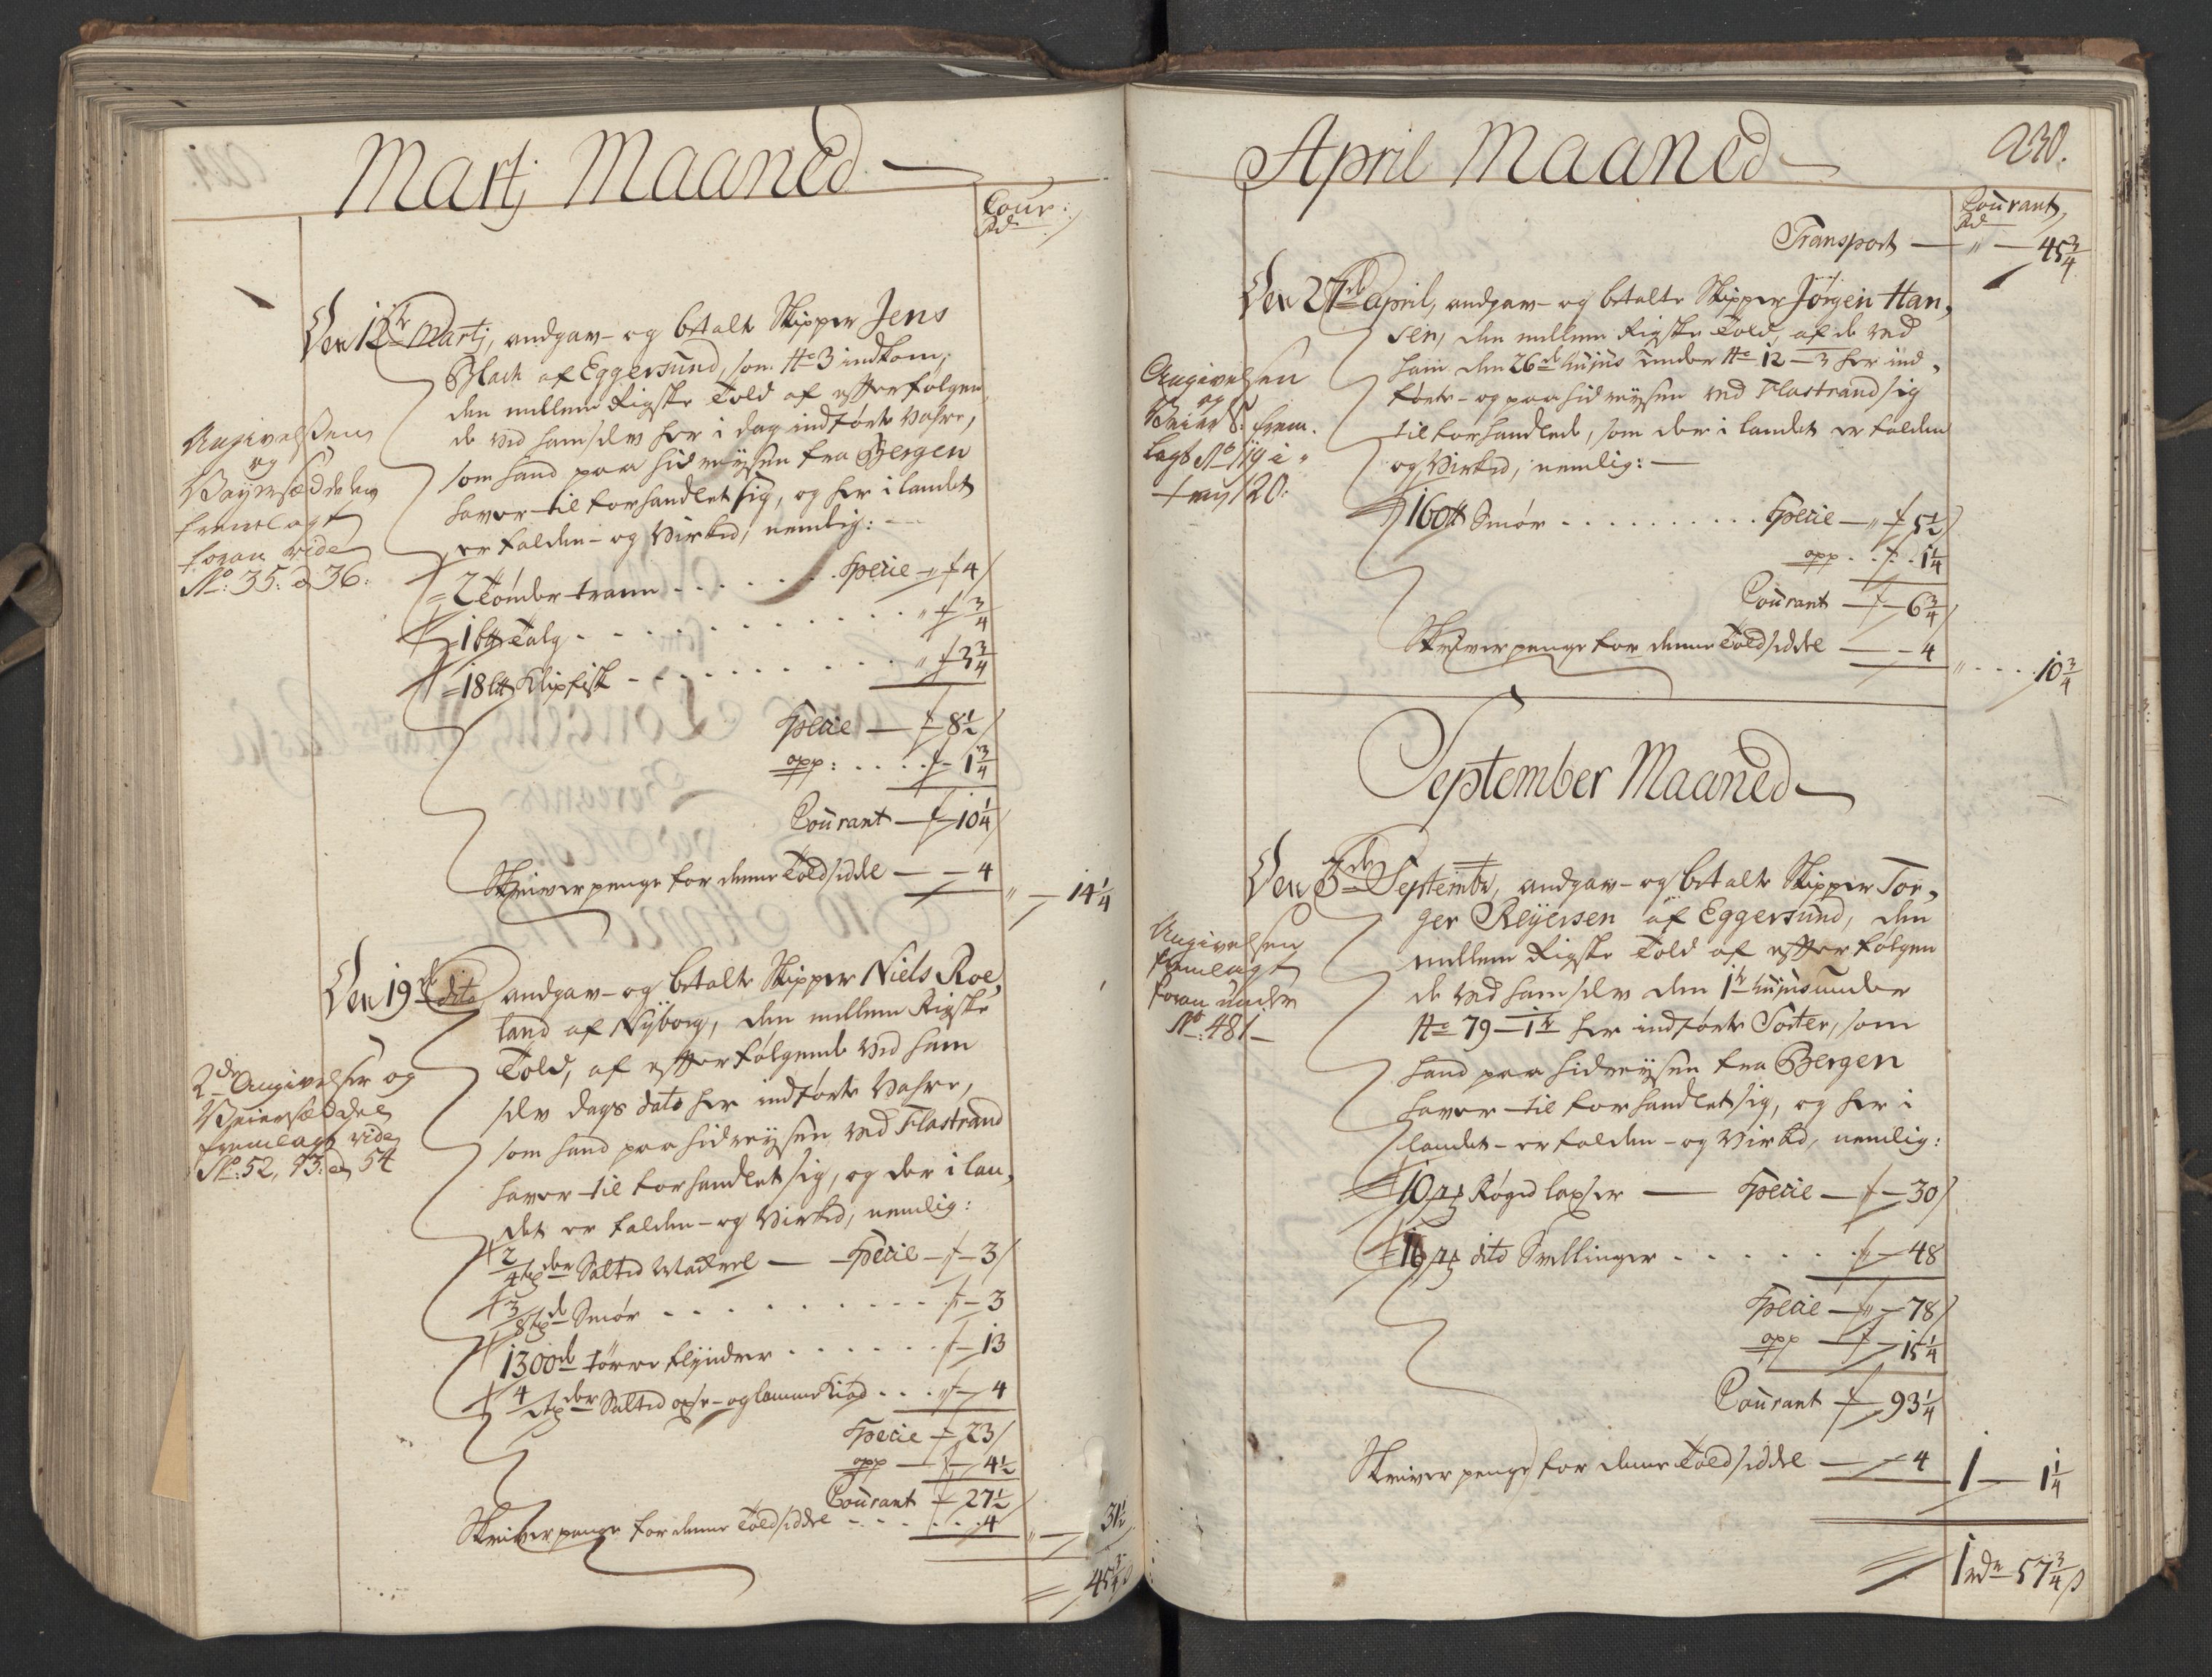 Martj Maaned
Cour:
Rd
Den 12te Martj, andgav- og betalte Skipper Jens
Black af Eggersund, som No 3 indkom,
den mellem Rigske Told af efterfølgen
de ved ham selv her i dag indførte Vahre,
som hand paa hidreysen fra Bergen
haver til forhandlet sig, og her i landet
er falden- og Virked, nemlig:
Angivelsen
og
Bøyersæddelen
fremlagt
foran vide
No: 35: a 36:
2 Tønder trann . . . Specie - " 4
1 btt Talg . . . " 3/4
18 btt Klipfisk . . . " 3 3/4
Specie — 8 1/2
opp: . . . 1 3/4
Courant — 10 1/4
Skriverpenge for denne Toldsedel — 4
" — 14 1/4
Den 19de dito andgav- og betalte Skipper Niels Roe,
land af Nyborg, den mellem Rigske
Told, af efterfølgende ved ham
selv dags dato her indførte Vahre,
som hand paa hidreysen ved Flastrand
haver til forhandlet sig, og der i lan,
det er falden- og Virked, nemlig:
2de Angivelser og
Veiersæddel
fremlagt vide
No: 52, 53: a 54
2/4 tdr Salted Mackrel — Specie — 3
3/8 td Smør . . . 3
1300de tørre flynder . . . 13
4/ tdr Salted oxe- og lamme Kiød . . . 4
Specie 23
opp — 4 1/2
Courant 27 1/2
Skriverpenge for denne Toldsedel . . . 4
" — 31 1/2
45 3/4 ß
April Maaned
230.
Courant
Rd
Transport — " — 45 3/4
Den 27de April, andgav- og betalte Skipper Jørgen Han,
sen, den mellem Rigske Told, af de ved
ham den 26de hujus under No 12 — 3 her ind,
førte- og paa hidreysen ved Flastrand sig
til forhandlede, som der i landet er falden
og Virked, nemlig: —
Angivelsen
og
Veier S: frem.
lagt No 119 i
120:
160 tt Smør . . . Specie — " 5 1/2
opp . . . 1 1/4
Courant — 6 3/4
Skriverpenge for denne Toldsedel — 4
" . . . 10 3/4
September Maaned
Den 3de Septembr, andgav- og betalte Skipper Tor,
ger Reyersen af Eggersund, den
mellem Rigske Told af efterfølgen
de ved ham selv den 1te hujus under
No 79 — 1te her indførte Sorter, som
hand paa hidreysen fra Bergen
haver til forhandlet sig, og her i
landet er falden- og Virked, nemlig:
Angivelsen
fremlagt
foran under
No: 481 —
10 Røged laxer — Specie — 30
16 dito Snellinger . . . 48
Specie — " 78
opp — 15 1/4
Courant 93 1/4
Skriver penge for denne Toldsedel — 4
1 — 1 1/4
1 rdr 57 3/4 ß